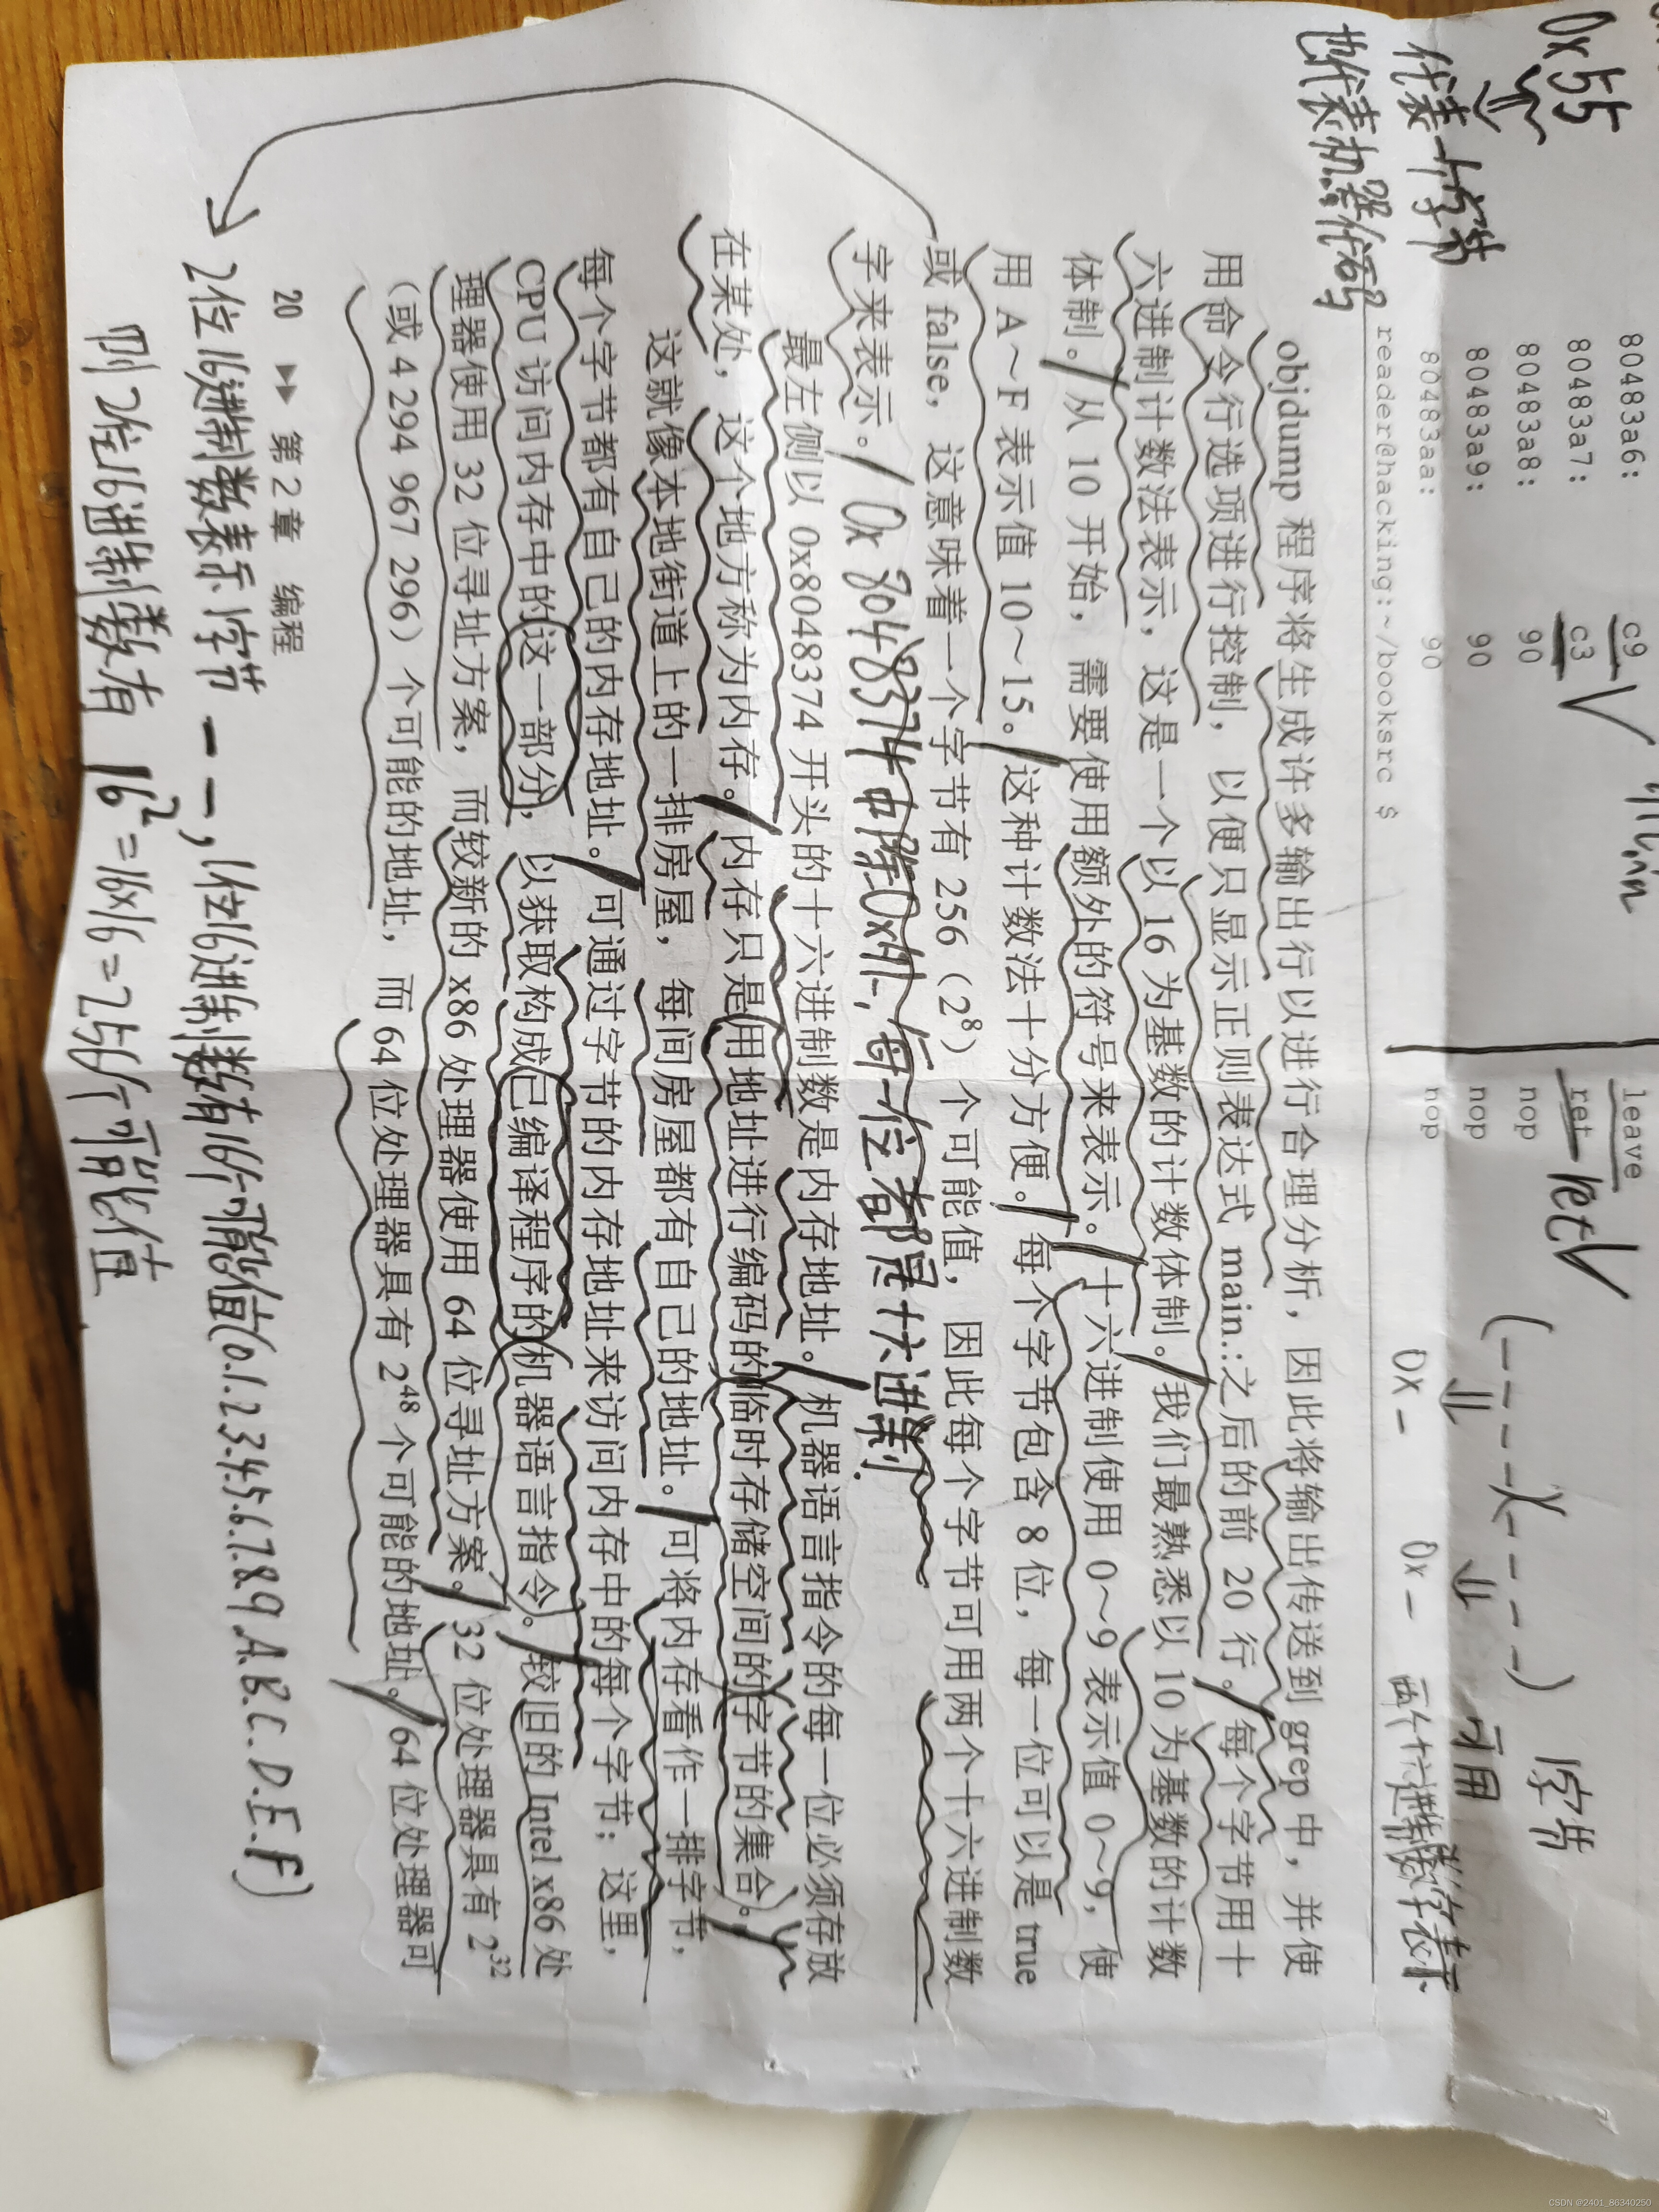 80483a6: c9 leave
80483a7: c3 ret ret
80483a8: 90 nop
80483a9: 90 nop
80483aa: 90 nop
reader@hacking:~/booksrc $
0x55
代表一个字节
也代表机器代码
1字节
可用
0x - 0x - 两个十六进制数字表示
objdump 程序将生成许多输出行以进行合理分析，因此将输出传送到 grep 中，并使
用命令行选项进行控制，以便只显示正则表达式 main.:之后的前 20 行。每个字节用十
六进制计数法表示，这是一个以 16 为基数的计数体制。我们最熟悉以 10 为基数的计数
体制。从 10 开始，需要使用额外的符号来表示。十六进制使用 0～9 表示值 0～9，使
用 A～F 表示值 10～15。这种计数法十分方便。每个字节包含 8 位，每一位可以是 true
或 false，这意味着一个字节有 256（2⁸）个可能值，因此每个字节可用两个十六进制数
字来表示。 0x8048374中除0x外，每一位都是十六进制.
最左侧以 0x8048374 开头的十六进制数是内存地址。机器语言指令的每一位必须存放
在某处，这个地方称为内存。内存只是用地址进行编码的临时存储空间的字节的集合。
这就像本地街道上的一排房屋，每间房屋都有自己的地址。可将内存看作一排字节，
每个字节都有自己的内存地址。可通过字节的内存地址来访问内存中的每个字节；这里，
CPU 访问内存中的这一部分，以获取构成已编译程序的机器语言指令。较旧的 Intel x86 处
理器使用 32 位寻址方案，而较新的 x86 处理器使用 64 位寻址方案。32 位处理器具有 2³²
（或 4 294 967 296）个可能的地址，而 64 位处理器具有 2⁴⁸ 个可能的地址。64 位处理器可
20 ▶▶ 第 2 章 编程
2位16进制数表示1字节 — —，1位16进制数有16个可能值(0.1.2.3.4.5.6.7.8.9.A.B.C.D.E.F)
则2位16进制数有 16²=16×16=256个可能值
CSDN @2401_86340250